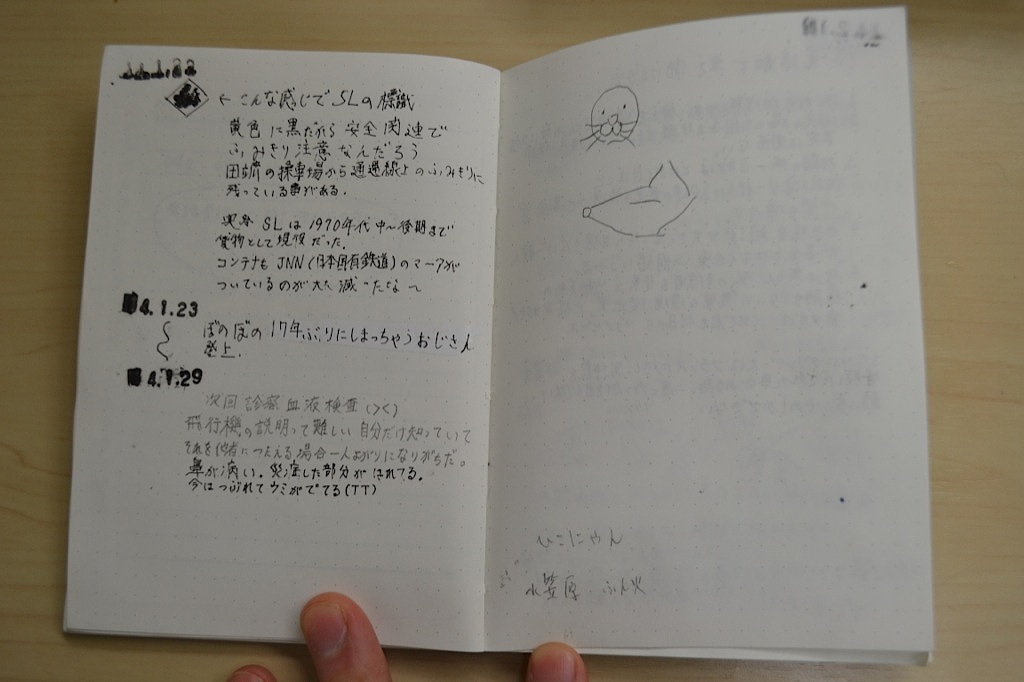 ←こんな感じでSLの標識
黄色に黒だから安全関連で
ふみきり注意なんだろう
の操車場から通過線上のふみきりに
残っている事がある。
実際SLは1970年代中~後期まで
貨物として現役だった。
コンテナもJNN(日本国有鉄道)のマークが
ついているのが大分減ったな~
4.1.23
ぼのぼの17年ぶりにしまっちゃうおじさん
登上.
4.1.29
次回診察血液検査(>く)
飛行機の説明って難しい自分だけ知っていて
それを他者につたえる場合一人よがりになりがちだ。
鼻が痛い。炎症した部分がはれてる。
今はつぶれてウミがでてる(TT)
ひこにゃん
小笠原 ふん火